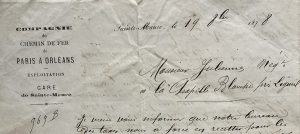 COMPAGNIE
DU
CHEMIN DE FER
DE
PARIS A ORLÉANS
EXPLOITATION
GARE
de Sainte-Maure
Sainte-Maure, le 19 8bre 1878
Monsieur Jubienne Négt
à la Chapelle Blanche par Ligueil
969 B
Je viens vous informer que notre bureau